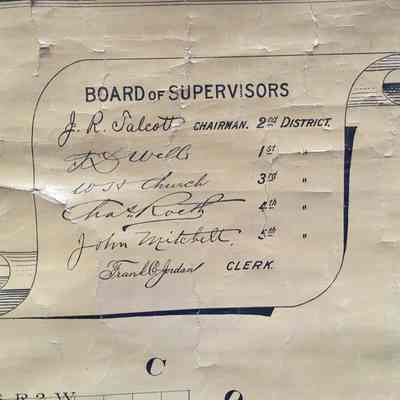 BOARD OF SUPERVISORS
J. R. Talcott CHAIRMAN. 2nd DISTRICT.
Wells 1st "
Church 3rd "
Chas Roeth 4th "
John Mitchell. 5th "
Frank C Jordan CLERK.
C
R 3 W